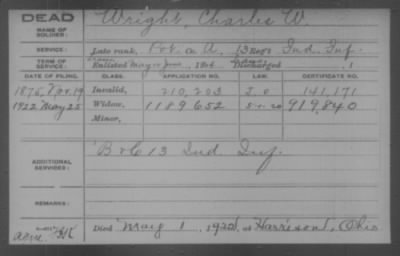 DEAD
NAME OF SOLDIER: Wright, Charles W.
SERVICE: Late rank, Pvt. Co A, 13 Regt Ind. Inf.
TERM OF SERVICE: Enlisted May or June, 186 Discharged , 1
DATE OF FILING. CLASS. APPLICATION NO. LAW. CERTIFICATE NO.
1875, Nov. 19 Invalid, 210,203 141,171
1922 May 25 Widow, 1189652 5-1-20 919,840
Minor,
ADDITIONAL SERVICES: B & C 13 Ind Inf.
REMARKS:
Died May 1, 1922, at Harrison, Ohio